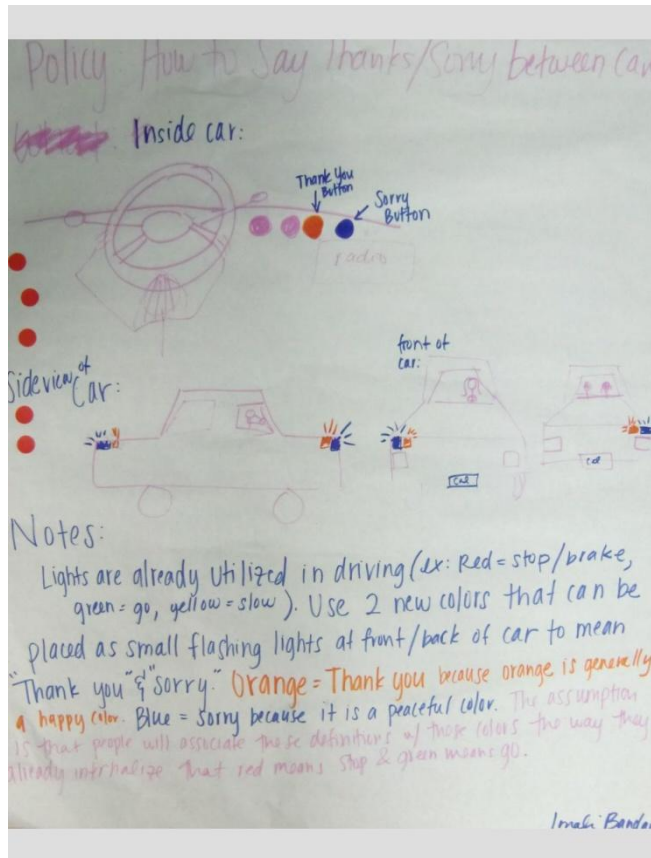 Policy How to Say Thanks/Sorry between Car
Inside car:
Thank You
Button
Sorry
Button
radio
front of
car:
Sideview of
Car:
Cal
Cal
Notes:
Lights are already utilized in driving (ex: Red = stop/brake,
green = go, yellow = slow). Use 2 new colors that can be
placed as small flashing lights at front/back of car to mean
"Thank you" & "sorry." Orange = Thank you because orange is generally
a happy color. Blue = sorry because it is a peaceful color. The assumption
is that people will associate these definitions w/ those colors the way they
already internalize that red means stop & green means go.